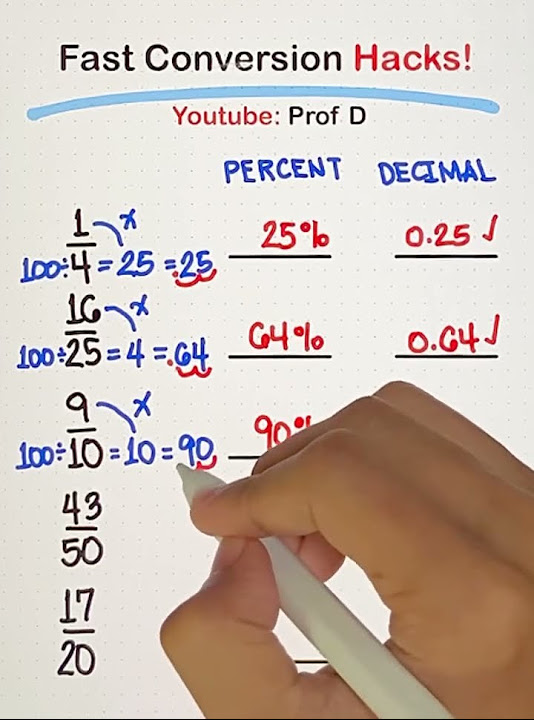 Fast Conversion Hacks!
Youtube: Prof D
PERCENT DECIMAL
1 x
100÷4 = 25 = .25 25% 0.25 ✓
16 x
100÷25 = 4 = .64 64% 0.64 ✓
9 x
100÷10 = 10 = 90 90%
43
50
17
20